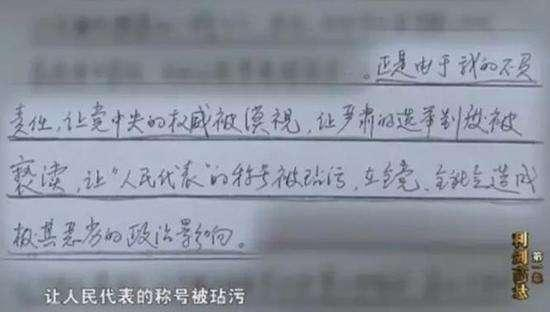 。正是由于我的不负
责任,让党中央的权威被漠视,让严肃的选举制度被
亵渎,让“人民代表”的称号被玷污,在全党、全社会造成
极其恶劣的政治影响。
利剑高悬
第一集
让人民代表的称号被玷污